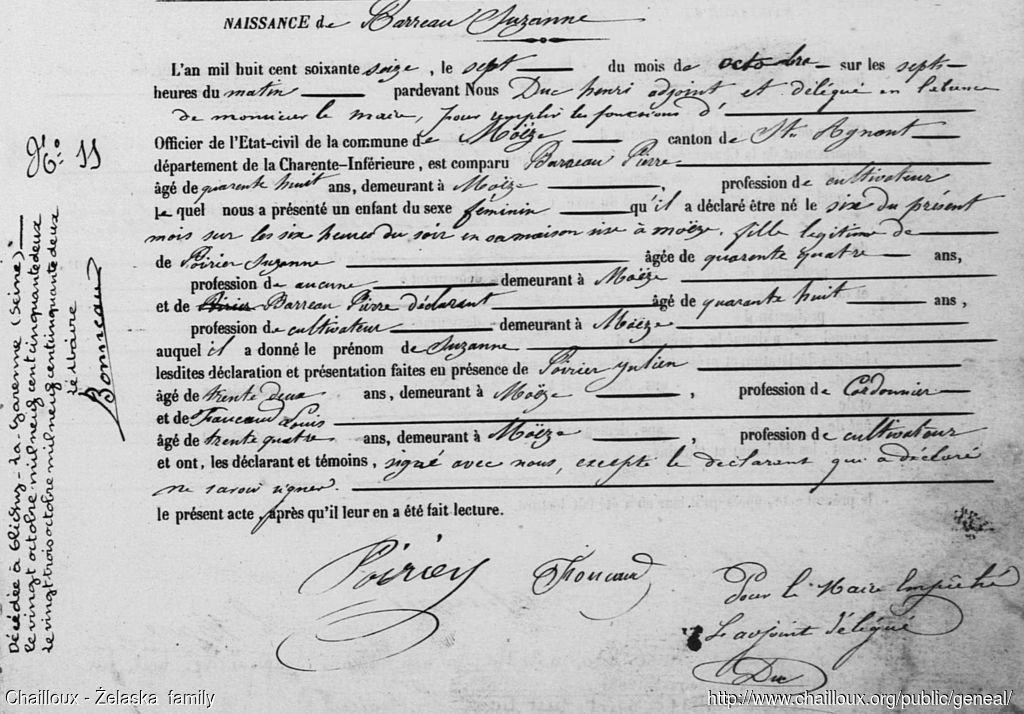 NAISSANCE de Barreau Suzanne
L'an mil huit cent soixante seize, le sept du mois de octobre sur les sept
heures du matin pardevant Nous Duc henri adjoint et délégué en l'absence
de monsieur le maire, pour remplir les fonctions d'
Officier de l'Etat-civil de la commune de Moëze canton de St Agnant
département de la Charente-Inférieure, est comparu Barreau Pierre
âgé de quarente huit ans, demeurant à Moëze, profession de cultivateur
le quel nous a présenté un enfant du sexe féminin qu'il a déclaré être né le six du présent
mois sur les six heures du soir en sa maison sise à moëze, fille legitime de
de Poirier Suzanne âgée de quarente quatre ans,
profession de aucune demeurant à Moëze
et de Barreau Pierre déclarant âgé de quarente huit ans,
profession de cultivateur demeurant à Moëze
auquel il a donné le prénom de Suzanne
lesdites déclaration et présentation faites eu présence de Poirier Julien
âgé de trente deux ans, demeurant à Moëze, profession de Cordonnier
et de Foucaud Louis
âgé de trente quatre ans, demeurant à Moëze, profession de cultivateur
et ont, les déclarant et témoins, signé avec nous, excepté le déclarant qui a déclaré
ne savoir signer.
le présent acte, après qu'il leur en a été fait lecture.
Poirier Foucaud
Pour le Maire Empêché
L'adjoint délégué
Duc
N° 55
Décédée à Gligny-La-Garenne (Seine)
le vingt octobre mil neuf cent cinquante deux
le vingt trois octobre mil neuf cent cinquante deux
Le Maire
Chailloux - Želaska family
http://www.chailloux.org/public/geneal/